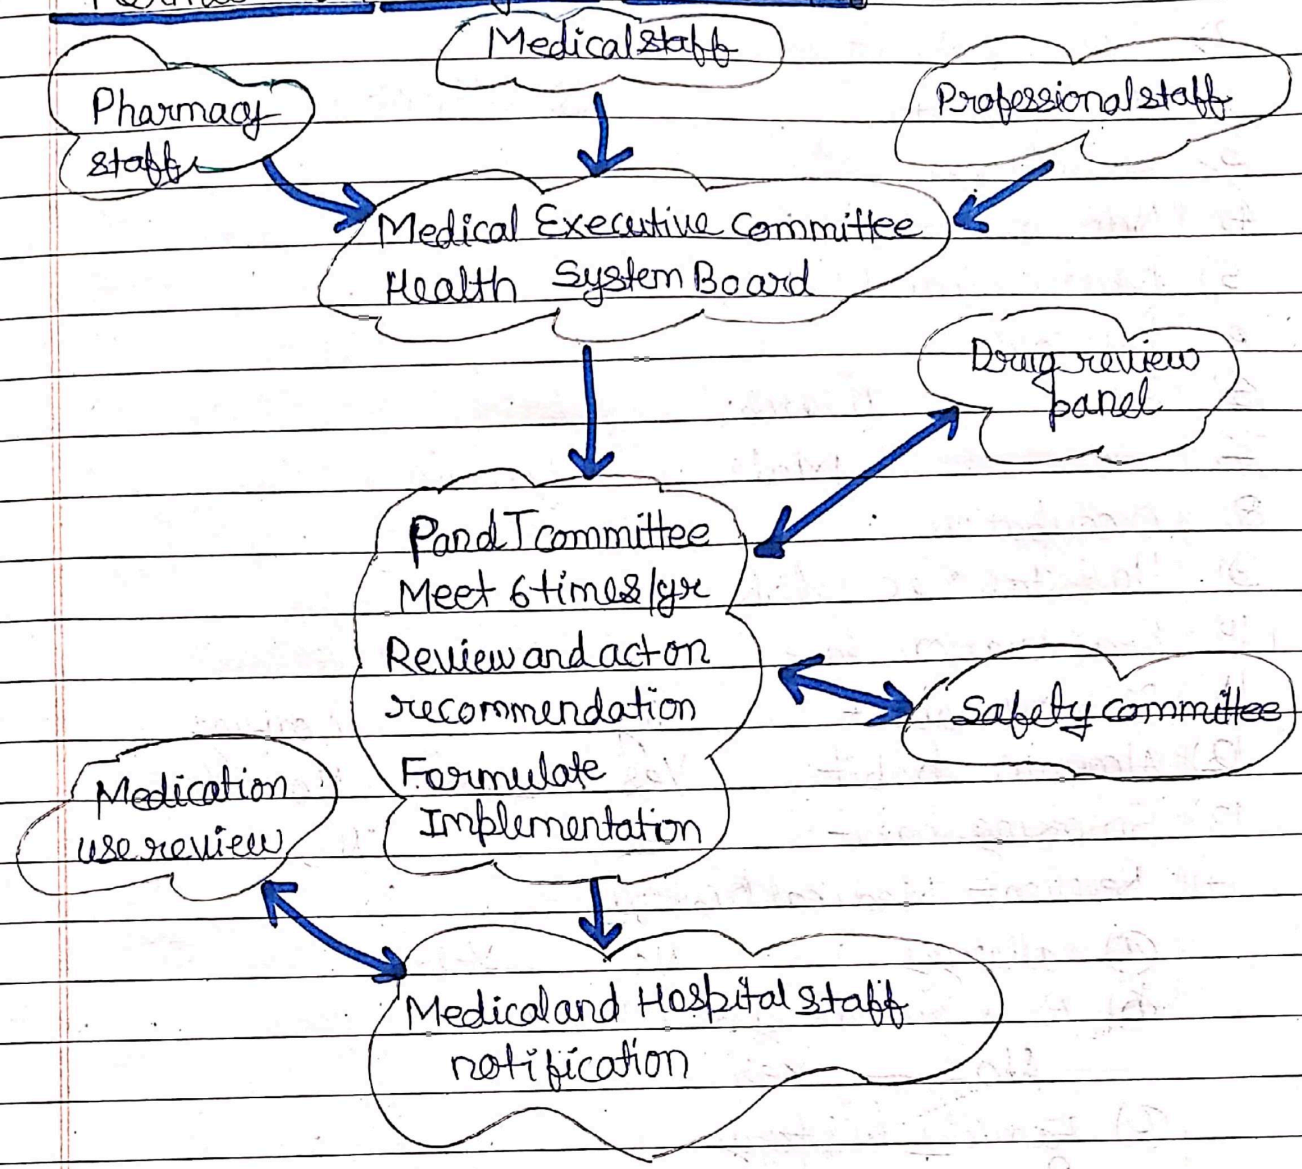 Medical staff
Pharmacy
staff
Professional staff
Medical Executive Committee
Health System Board
Drug review
panel
P and T committee
Meet 6 times/yr
Review and act on
recommendation
Formulate
Implementation
Safety committee
Medication
use review
Medical and Hospital staff
notification